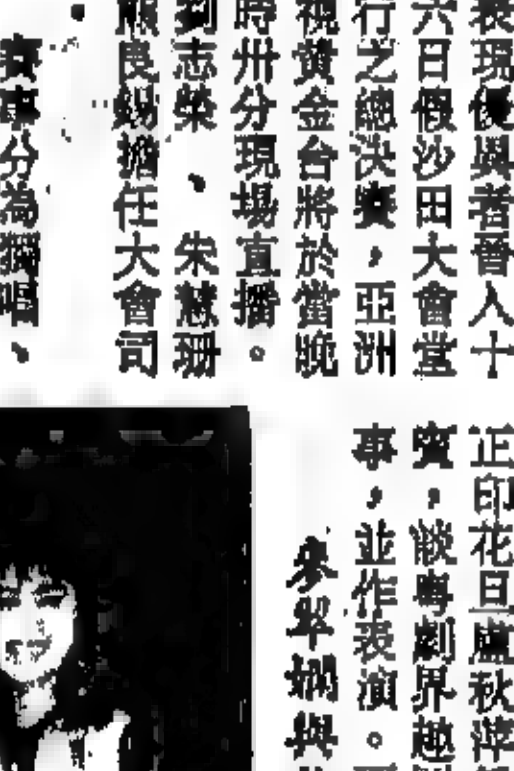 表現優異者晉入十
六日假沙田大會堂
行之總決賽，亞洲
視黃金台將於當晚
時卅分現場直播。
劉志榮、朱慧珊
熊良錫擔任大會司
賽事分為獨唱、
正印花旦盧秋萍
賓，談粵劇界趣
事，並作表演。
翠嫻與